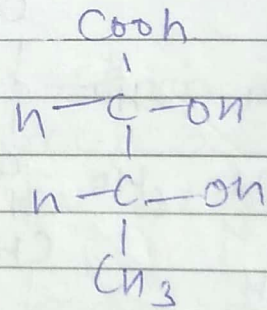 COOH
H-C-OH
H-C-OH
CH3